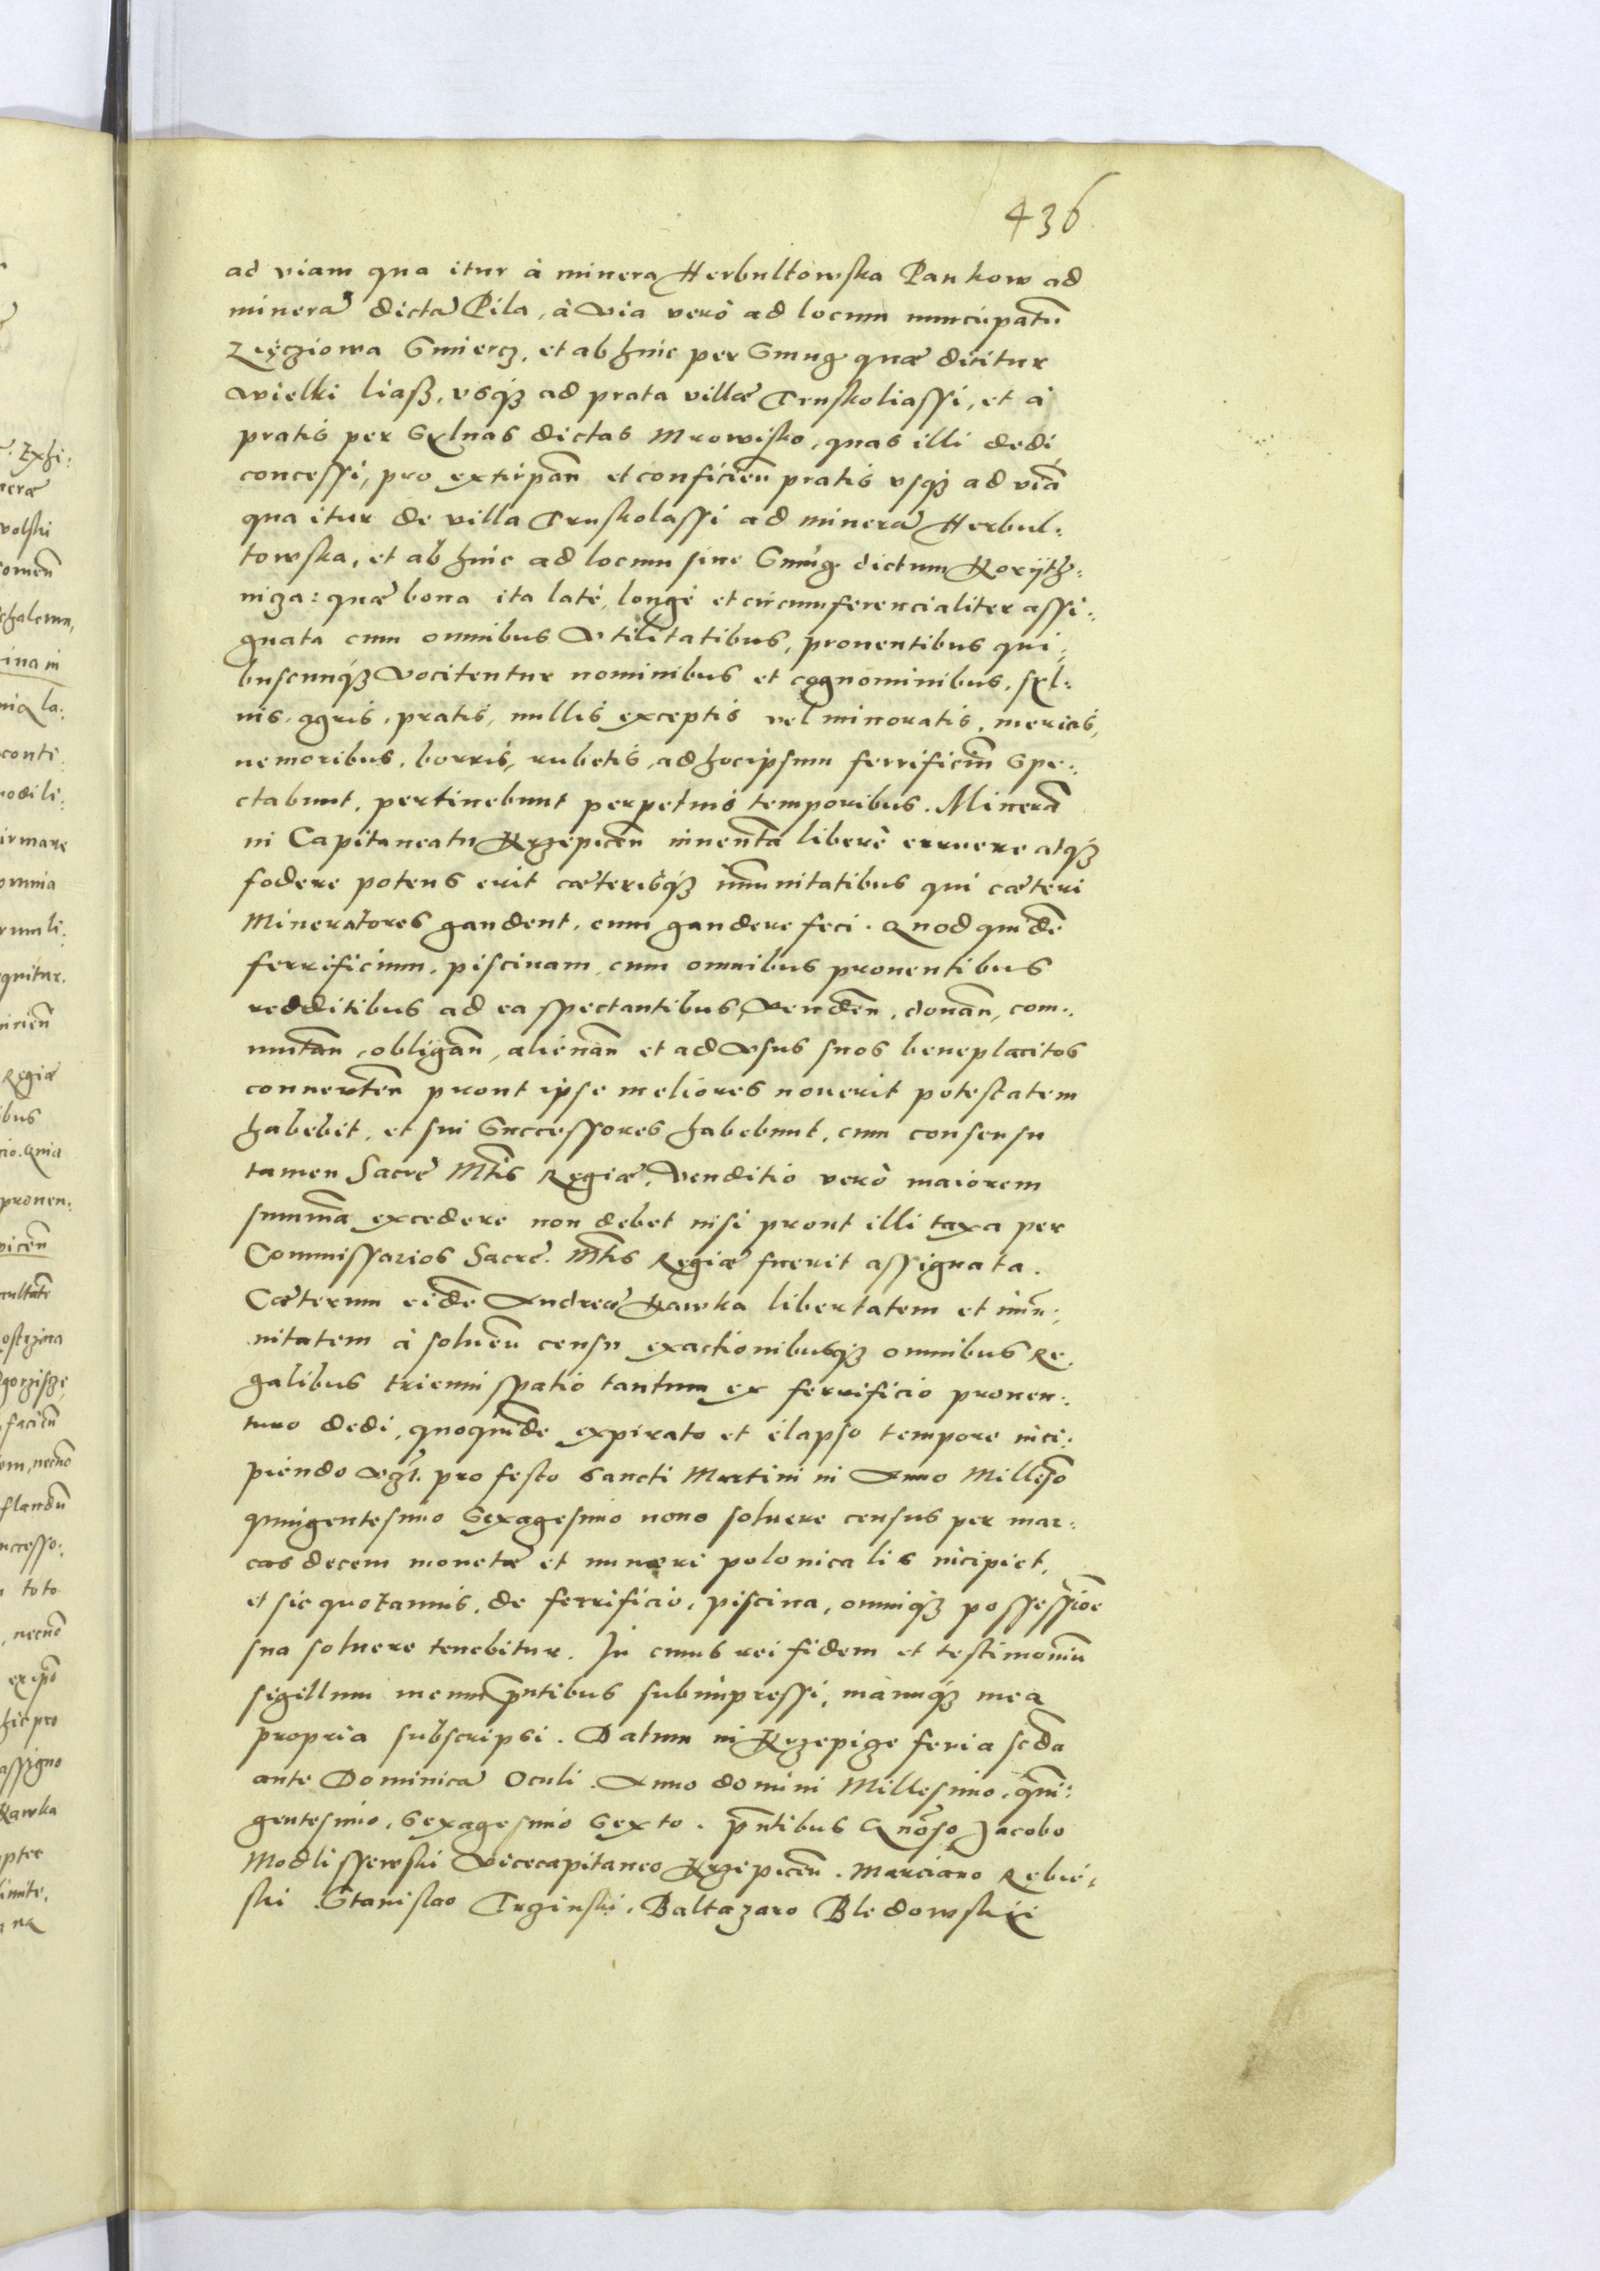 436
ad viam qua itur à minera Herbultowska Pankow ad
minerã dictã Pila, à via verò ad locum nuncupatũ
Zięcziowa Smiercz, et ab hinc per Smug quæ dicitur
wielki liasß, vsq3 ad prata villæ Truskoliassi, et à
pratis per Syluas dictas Mrowisko, quas illi dedi
concessi, pro extirpañ et conficieñ pratis vsq3 ad viã
qua itur de villa Truskolassi ad minerã Herbul:
towska, et ab hinc ad locum siue Smug dictum Korÿth:
nicza: quæ bona ita latè, longè et circumferencialiter assi:
gnata cum omnibus vtilitatibus, prouentibus qui:
buscunq3 vocitentur nominibus et cognominibus, syl:
uis, agris, pratis, nullis exceptis vel minoratis, mericis,
nemoribus, borris, rubetis, ad hoc ipsum ferrificiũ Spe:
ctabunt, pertinebunt perpetuis temporibus. Minerã
in Capitaneatu Krzepiceñ inuentã liberè erruere atq3
fodere potens erit cæterisq3 im̃unitatibus qui cæteri
Mineratores gaudent, eum gaudere feci. Quod quidẽ
ferrificium, piscinam, cum omnibus prouentibus
redditibus ad ea spectantibus, vendeñ, donañ, com:
mutañ, obligañ, alienañ et ad vsus suos beneplacitos
conuerteñ prout ipse meliores nouerit potestatem
habebit, et sui Successores habebunt, cum consensu
tamen Sacrę Mtis Regiæ, venditio verò maiorem
summã excedere non debet nisi prout illi taxa per
Commissarios Sacrę. Mtis Regiæ fuerit assignata.
Cæterum eidẽ Andreæ Kawka libertatem et im̃u:
nitatem à solueñ censu exactionibusq3 omnibus Re:
galibus triennii spatio tantum ex ferrificio prouen:
turo dedi, quoquidẽ expirato et elapso tempore inci:
piendo pro festo Sancti Martini in Anno Millesõ
quingentesimo Sexagesimo nono soluere census per mar:
cas decem monetæ et numeri polonicalis incipiet,
et sic quotannis, de ferrificio, piscina, omniq3 possessiõe
sua soluere tenebitur. In cuius rei fidem et testimoniũ
sigillum meum pñtibus subimpressi, manuq3 mea
propria subscripsi. Datum in Krzepice feria scđa
ante Dominicã Oculi. Anno domini Millesimo, quin:
gentesimo, Sexagesimo Sexto. pñtibus Gñoso Jacobo
Modlissewski vicecapitaneo Krzepiceñ. Marciano Rebie:
ski Stanislao Trzinski, Baltazaro Bledowskii